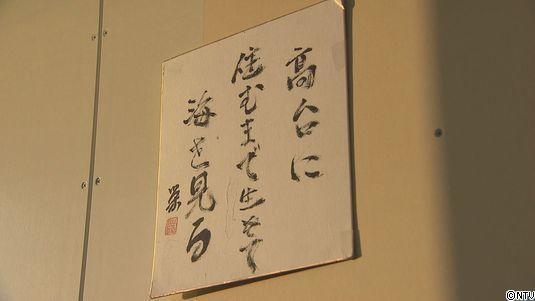 高台に
住むまで生きて
海を見る
栄
©NTV